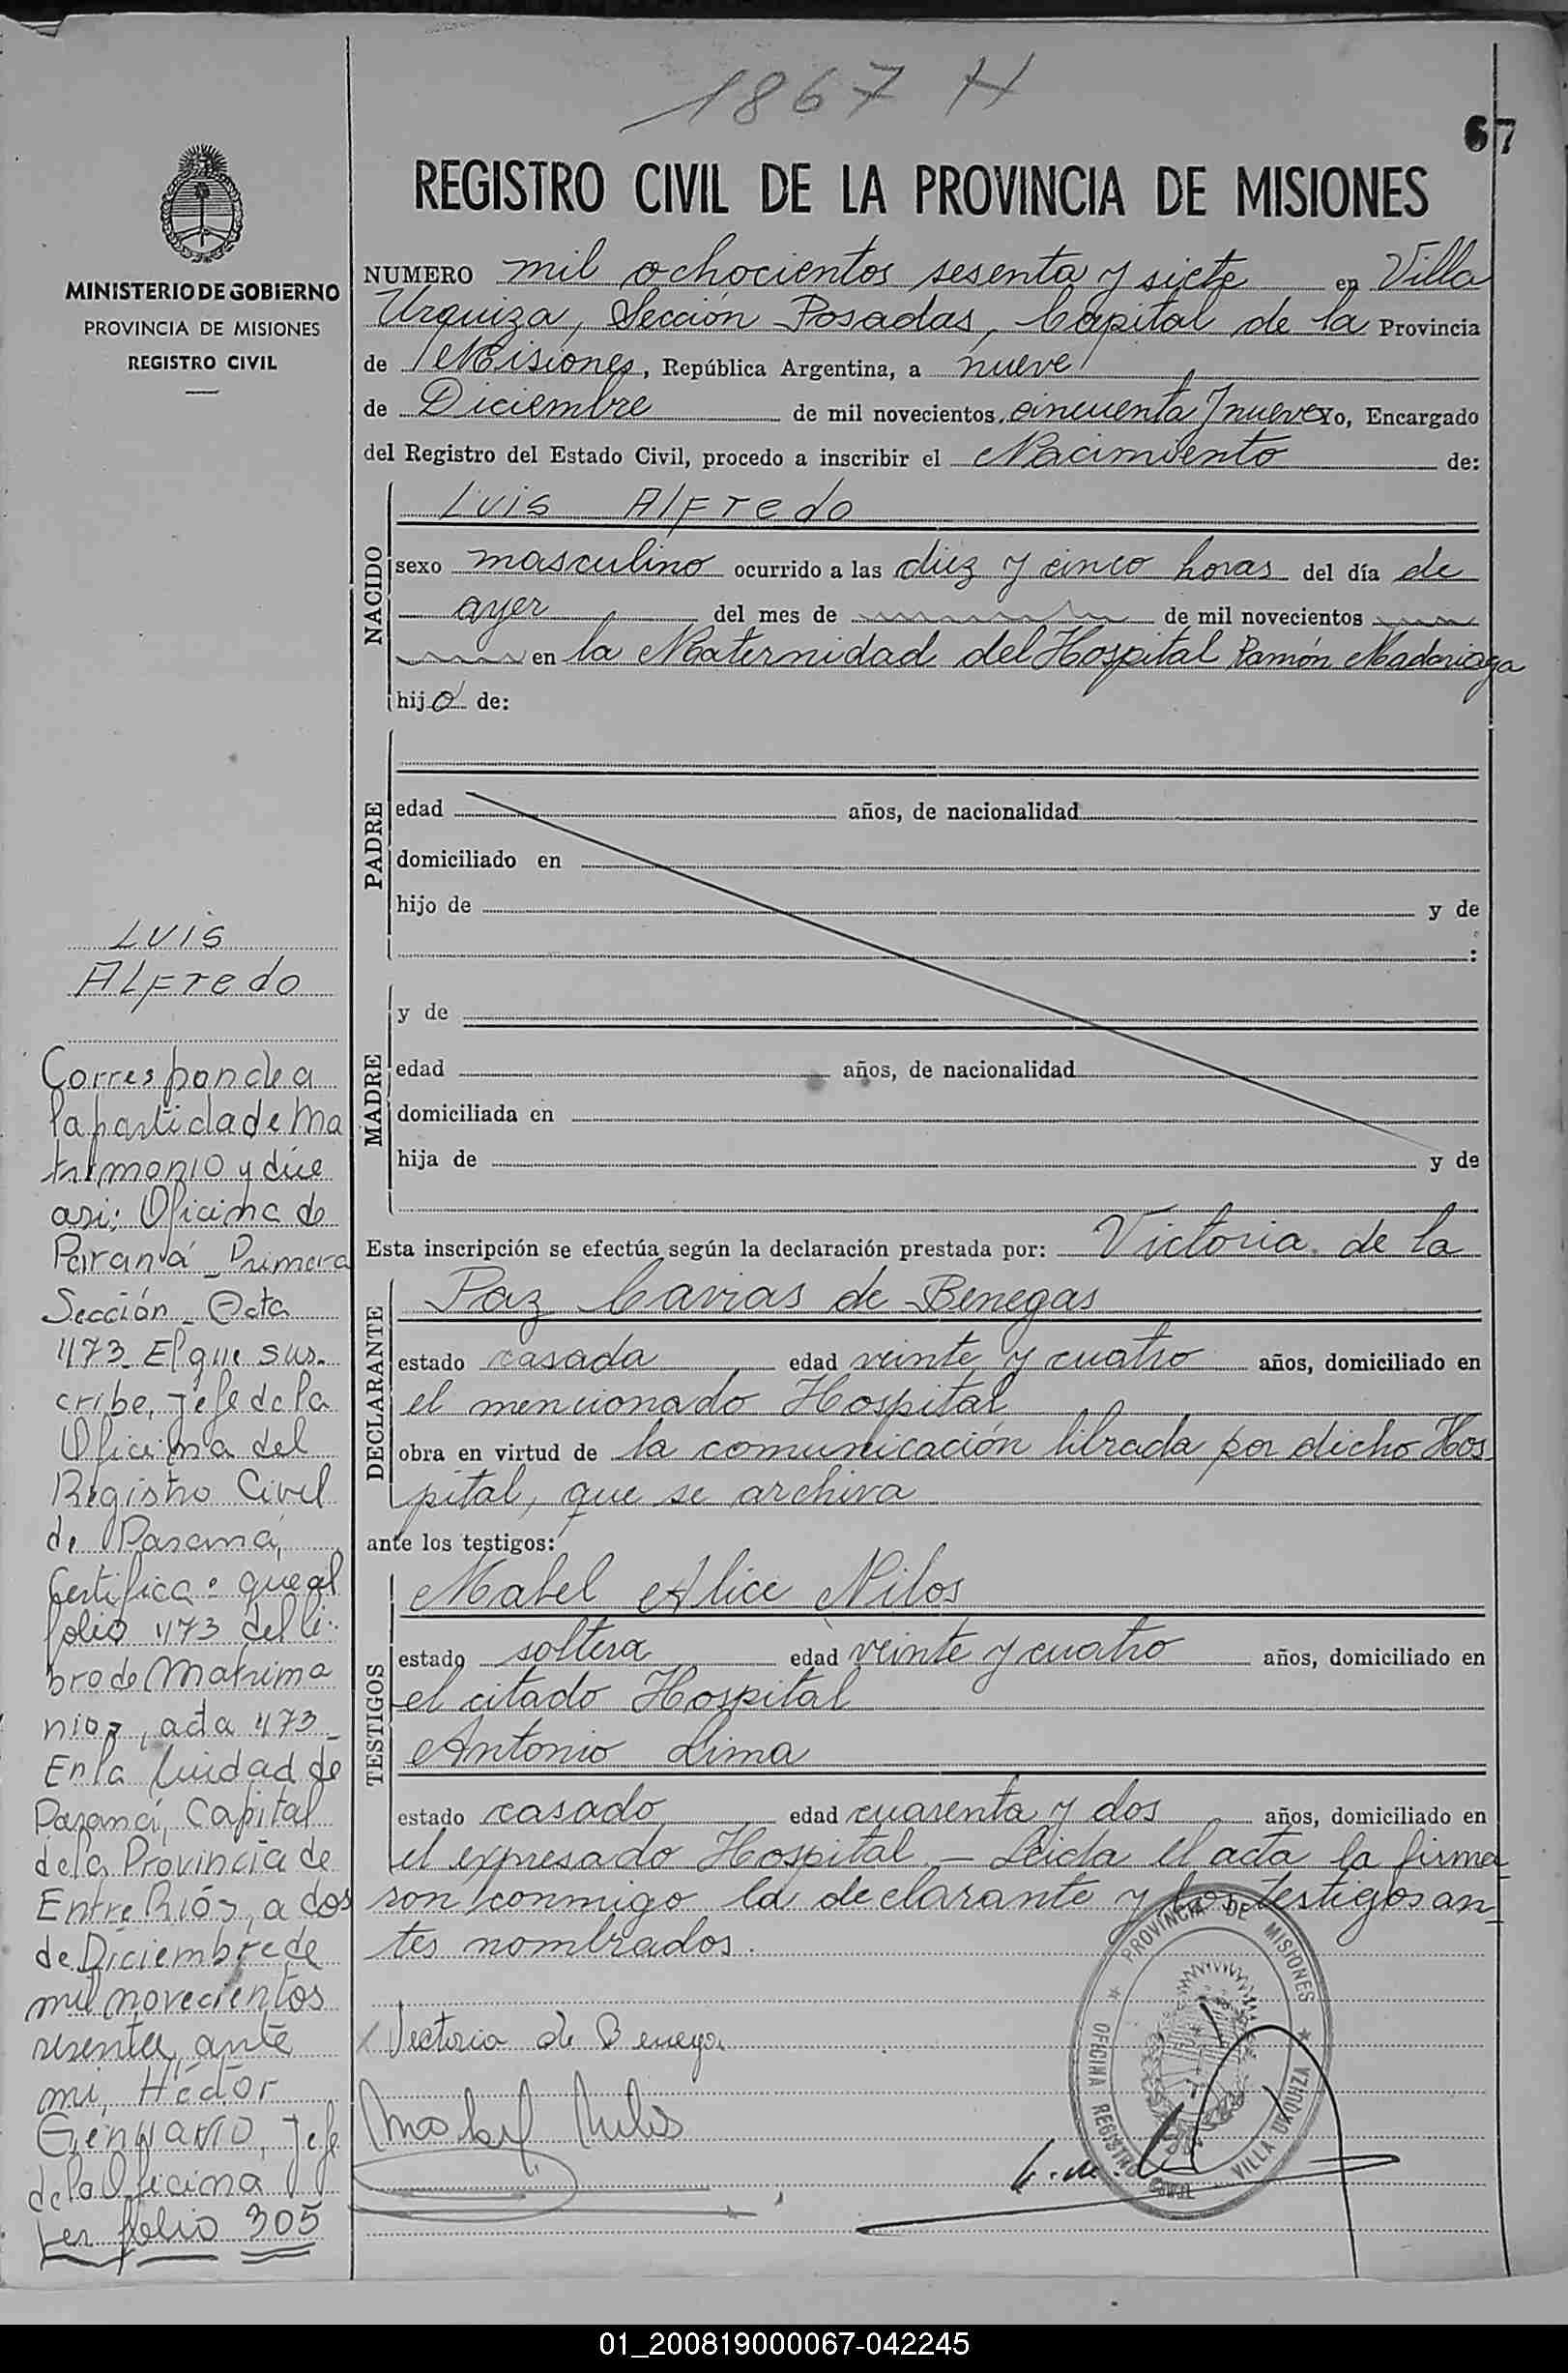 1867 H
67
MINISTERIO DE GOBIERNO
PROVINCIA DE MISIONES
REGISTRO CIVIL
REGISTRO CIVIL DE LA PROVINCIA DE MISIONES
NUMERO mil ochocientos sesenta y siete en Villa
Urquiza, Sección Posadas, Capital de la Provincia
de Misiones, República Argentina, a nueve
de Diciembre de mil novecientos cincuenta y nueve Yo, Encargado
del Registro del Estado Civil, procedo a inscribir el Nacimiento de:
NACIDO
Luis Alfredo
sexo masculino ocurrido a las diez y cinco horas del día de
ayer del mes de de mil novecientos
en la Maternidad del Hospital Ramón Madariaga
hijo de:
PADRE
edad años, de nacionalidad
domiciliado en
hijo de y de
:
MADRE
y de
edad años, de nacionalidad
domiciliada en
hija de y de
Esta inscripción se efectúa según la declaración prestada por: Victoria de la
DECLARANTE
Paz Cavias de Benegas
estado casada edad veinte y cuatro años, domiciliado en
el mencionado Hospital
obra en virtud de la comunicación librada por dicho Hos
pital, que se archiva
ante los testigos:
TESTIGOS
Mabel Alice Nilos
estado soltera edad veinte y cuatro años, domiciliado en
el citado Hospital
Antonio Lima
estado casado edad cuarenta y dos años, domiciliado en
el expresado Hospital.- Leida el acta la firma
ron conmigo la declarante y los testigos an-
tes nombrados.
Victoria de Benegas
Mabel Nilos
PROVINCIA DE MISIONES
OFICINA REGISTRO CIVIL
VILLA URQUIZA
Luis
Alfredo
Corresponde a
la partida de Ma
trimonio y dice
asi: Oficina de
Paraná - Primera
Sección - Acta
473 El que sus-
cribe, Jefe de la
Oficina del
Registro Civil
de Paraná,
Certifica: que al
folio 473 del li-
bro de Matrimo
nios, acta 473
En la Ciudad de
Paraná, Capital
de la Provincia de
Entre Ríos, a dos
de Diciembre de
mil novecientos
sesenta, ante
mi, Héctor
Gennario, Jefe
de la Oficina
ver folio 305
01_200819000067-042245